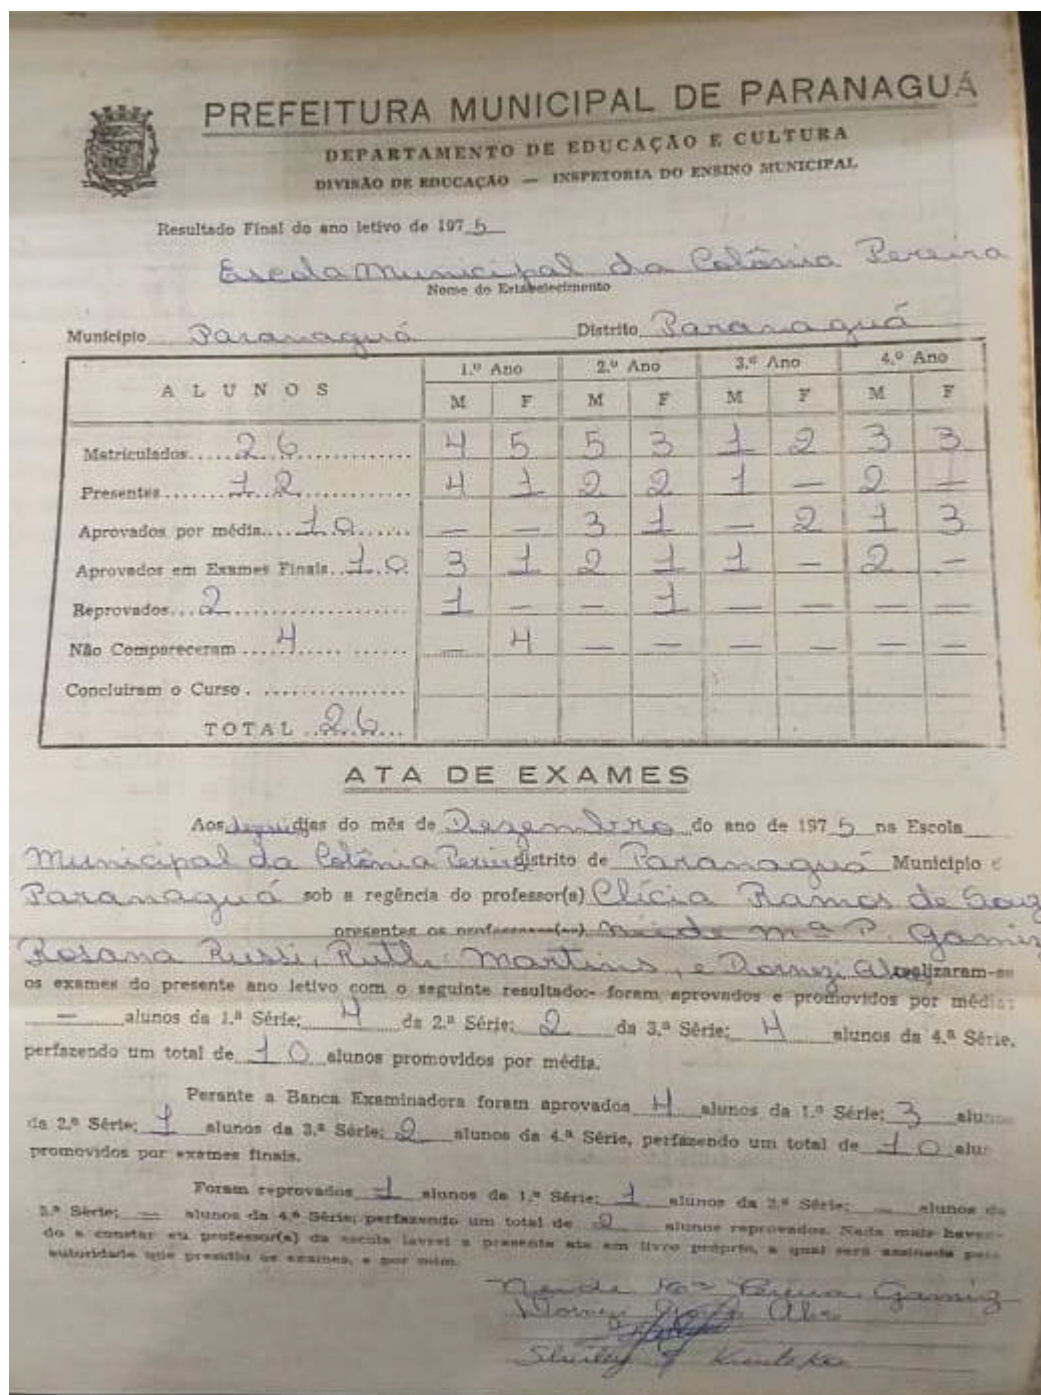 PREFEITURA MUNICIPAL DE PARANAGUÁ
DEPARTAMENTO DE EDUCAÇÃO E CULTURA
DIVISÃO DE EDUCAÇÃO — INSPETORIA DO ENSINO MUNICIPAL
Resultado Final do ano letivo de 1975
Escola Municipal da Colônia Pereira
Nome do Estabelecimento
Município Paranaguá Distrito Paranaguá
ALUNOS 1.º Ano 2.º Ano 3.º Ano 4.º Ano
M F M F M F M F
Matriculados 26 4 5 5 3 1 2 3 3
Presentes 12 4 1 2 2 1 — 2 —
Aprovados por média 10 — — 3 1 — 2 1 3
Aprovados em Exames Finais 10 3 1 2 1 1 — 2 —
Reprovados 2 1 — — 1 — — — —
Não Compareceram 4 — 4 — — — — — —
Concluiram o Curso
TOTAL 26
ATA DE EXAMES
Aos dias do mês de Dezembro do ano de 1975 na Escola
Municipal da Colônia Pereira distrito de Paranaguá Município
Paranaguá sob a regência do professor(a) Clícia Ramos de Souz
presentes os professores(as) Neide Mª P. Gamiz
Rosana Russi, Ruth Martins, e Dornezi Alves realizaram-se
os exames do presente ano letivo com o seguinte resultado:- foram aprovados e promovidos por média:
— alunos da 1.ª Série; 4 da 2.ª Série; 2 da 3.ª Série; 4 alunos da 4.ª Série,
perfazendo um total de 10 alunos promovidos por média.
Perante a Banca Examinadora foram aprovados 4 alunos da 1.ª Série; 3 alunos
da 2.ª Série; 1 alunos da 3.ª Série; 2 alunos da 4.ª Série, perfazendo um total de 10 alu
promovidos por exames finais.
Foram reprovados 1 alunos da 1.ª Série; 1 alunos da 2.ª Série; — alunos da
3.ª Série; — alunos da 4.ª Série; perfazendo um total de 2 alunos reprovados. Nada mais haven-
do a constar eu professor(a) da escola lavrei a presente ata em livro próprio, a qual será assinada pela
autoridade que presidiu os exames, e por mim.
Neide Mª Pereira Gamiz
Alves
Shirley